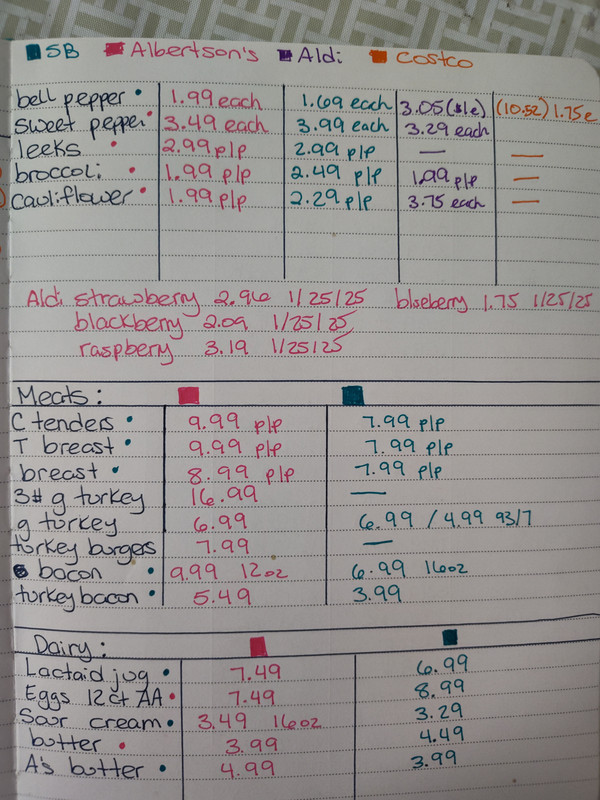 SB Albertson's Aldi Costco
bell pepper 1.99 each 1.69 each 3.05 (sle) (10.52) 1.75e
sweet pepper 3.49 each 3.99 each 3.29 each
leeks 2.99 plp 2.99 plp — —
broccoli 1.99 plp 2.49 plp 1.99 plp —
cauliflower 1.99 plp 2.29 plp 3.75 each —
Aldi strawberry 2.96 1/25/25 blueberry 1.75 1/25/25
blackberry 2.09 1/25/25
raspberry 3.19 1/25/25
Meats:
C tenders 9.99 plp 7.99 plp
T breast 9.99 plp 7.99 plp
breast 8.99 plp 7.99 plp
3# g turkey 16.99 —
g turkey 6.99 6.99 / 4.99 93/7
turkey burgers 7.99 —
bacon 9.99 12oz 6.99 16oz
turkey bacon 5.49 3.99
Dairy:
Lactaid jug 7.49 6.99
Eggs 12ct AA 7.49 8.99
Sour cream 3.49 16oz 3.29
butter 3.99 4.49
A's butter 4.99 3.99